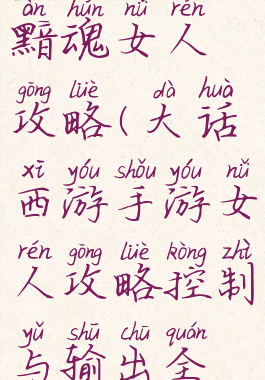 àn hún nǚ rén
黯魂女人
gōng lüè dà huà
攻略(大话
xī yóu shǒu yóu nǚ
西游手游女
rén gōng lüè kòng zhì
人攻略控制
yǔ shū chū quán
与输出全